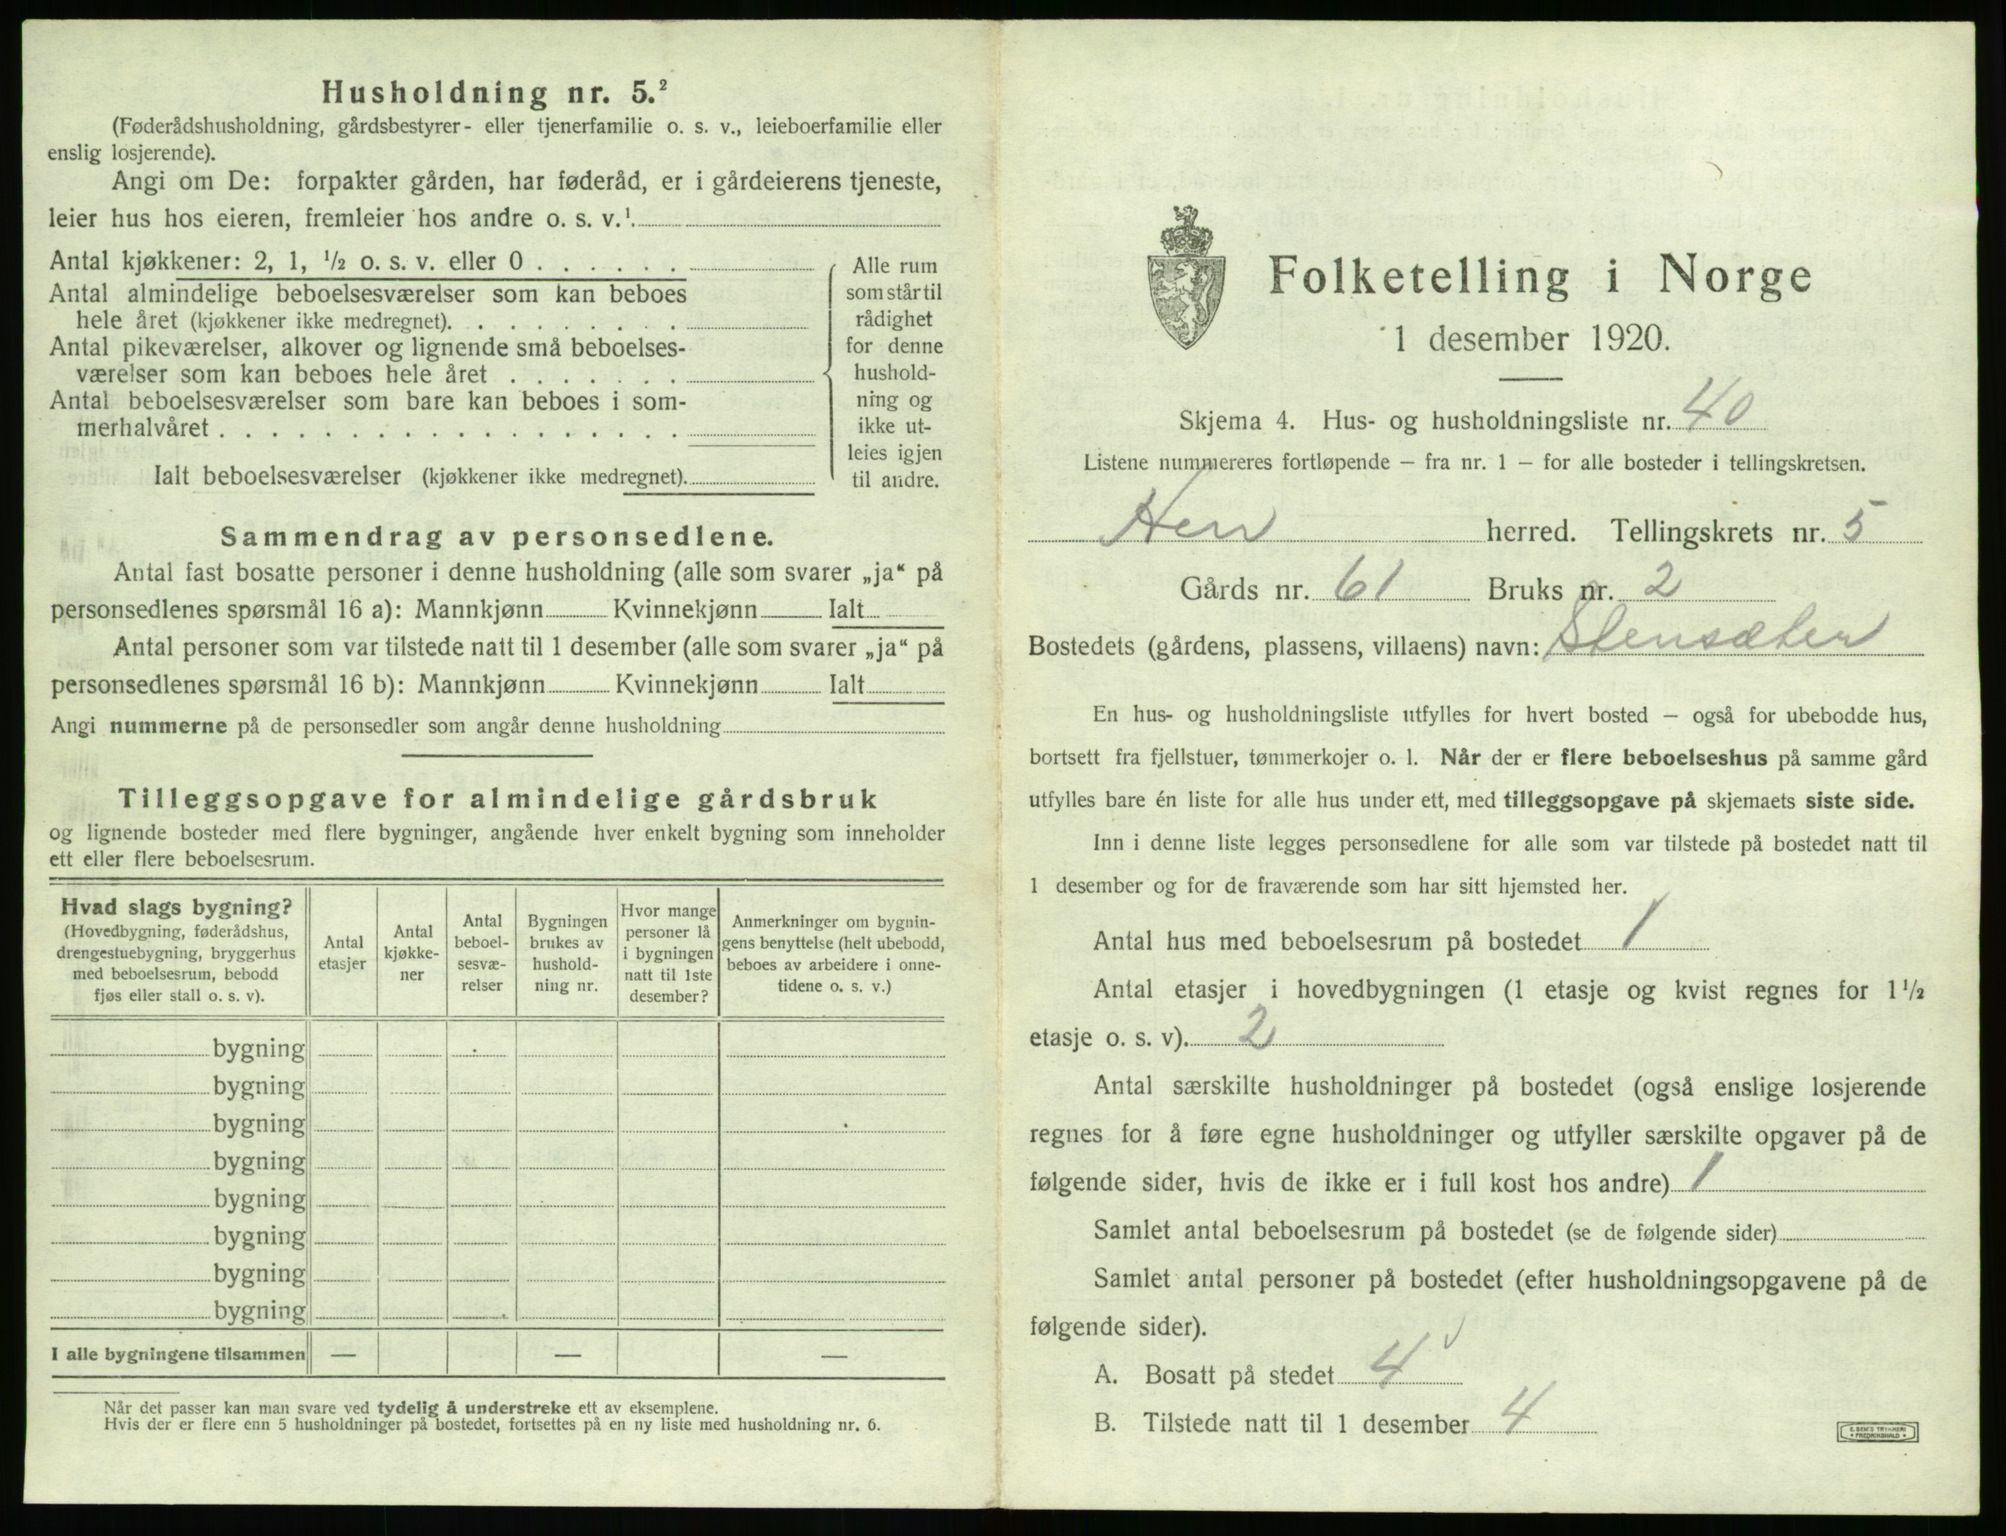 Husholdning nr. 5.²
(Føderådshusholdning, gårdsbestyrer- eller tjenerfamilie o. s. v., leieboerfamilie eller
enslig losjerende).
Angi om De: forpakter gården, har føderåd, er i gårdeierens tjeneste,
leier hus hos eieren, fremleier hos andre o. s. v.¹
Antal kjøkkener: 2, 1, ½ o. s. v. eller 0 . . . . . .
Antal almindelige beboelsesværelser som kan beboes
hele året (kjøkkener ikke medregnet). . . . . . . . .
Antal pikeværelser, alkover og lignende små beboelses-
værelser som kan beboes hele året . . . . . . .
Antal beboelsesværelser som bare kan beboes i som-
merhalvåret . . . . . . . . . . . . . . . . . .
Ialt beboelsesværelser (kjøkkener ikke medregnet).
Alle rum
som står til
rådighet
for denne
hushold-
ning og
ikke ut-
leies igjen
til andre.
Sammendrag av personsedlene.
Antal fast bosatte personer i denne husholdning (alle som svarer „ja“ på
personsedlenes spørsmål 16 a): Mannkjønn Kvinnekjønn Ialt
Antal personer som var tilstede natt til 1 desember (alle som svarer „ja“ på
personsedlenes spørsmål 16 b): Mannkjønn Kvinnekjønn Ialt
Angi nummerne på de personsedler som angår denne husholdning
Tilleggsopgave for almindelige gårdsbruk
og lignende bosteder med flere bygninger, angående hver enkelt bygning som inneholder
ett eller flere beboelsesrum.
Hvad slags bygning?
(Hovedbygning, føderådshus,
drengestuebygning, bryggerhus
med beboelsesrum, bebodd
fjøs eller stall o. s. v).
Antal
etasjer
Antal
kjøkke-
ner
Antal
beboel-
sesvæ-
relser
Bygningen
brukes av
hushold-
ning nr.
Hvor mange
personer lå
i bygningen
natt til 1ste
desember?
Anmerkninger om bygnin-
gens benyttelse (helt ubebodd,
beboes av arbeidere i onne-
tidene o. s. v.)
bygning
bygning
bygning
bygning
bygning
bygning
bygning
bygning
I alle bygningene tilsammen — — —
Når det passer kan man svare ved tydelig å understreke ett av eksemplene.
Hvis der er flere enn 5 husholdninger på bostedet, fortsettes på en ny liste med husholdning nr. 6.
Folketelling i Norge
1 desember 1920.
Skjema 4. Hus- og husholdningsliste nr. 40
Listene nummereres fortløpende — fra nr. 1 — for alle bosteder i tellingskretsen.
Hen herred. Tellingskrets nr. 5
Gårds nr. 61 Bruks nr. 2
Bostedets (gårdens, plassens, villaens) navn: Stensæter
En hus- og husholdningsliste utfylles for hvert bosted — også for ubebodde hus,
bortsett fra fjellstuer, tømmerkojer o. l. Når der er flere beboelseshus på samme gård
utfylles bare én liste for alle hus under ett, med tilleggsopgave på skjemaets siste side.
Inn i denne liste legges personsedlene for alle som var tilstede på bostedet natt til
1 desember og for de fraværende som har sitt hjemsted her.
Antal hus med beboelsesrum på bostedet 1
Antal etasjer i hovedbygningen (1 etasje og kvist regnes for 1½
etasje o. s. v). 2
Antal særskilte husholdninger på bostedet (også enslige losjerende
regnes for å føre egne husholdninger og utfyller særskilte opgaver på de
følgende sider, hvis de ikke er i full kost hos andre) 1
Samlet antal beboelsesrum på bostedet (se de følgende sider)
Samlet antal personer på bostedet (efter husholdningsopgavene på de
følgende sider).
A. Bosatt på stedet 4
B. Tilstede natt til 1 desember 4
E. SEM'S TRYKKERI
FREDRIKSHALD